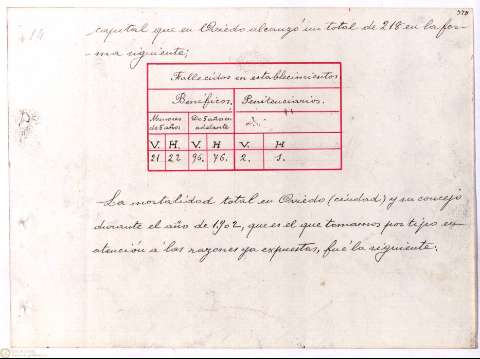 capital que en Oviedo alcanzó un total de 218 en la for-
ma siguiente;
Fallecidos en establecimientos
Benéficos, Penitenciarios.
Menores de 5 años
De 5 años en adelante
V. H. V. H V. H
21 22 96. 76. 2. 1.
La mortalidad total en Oviedo (ciudad) y su concejo
durante el año de 1902, que es el que tomamos por tipo en
atención á las razones ya expuestas, fué la siguiente: